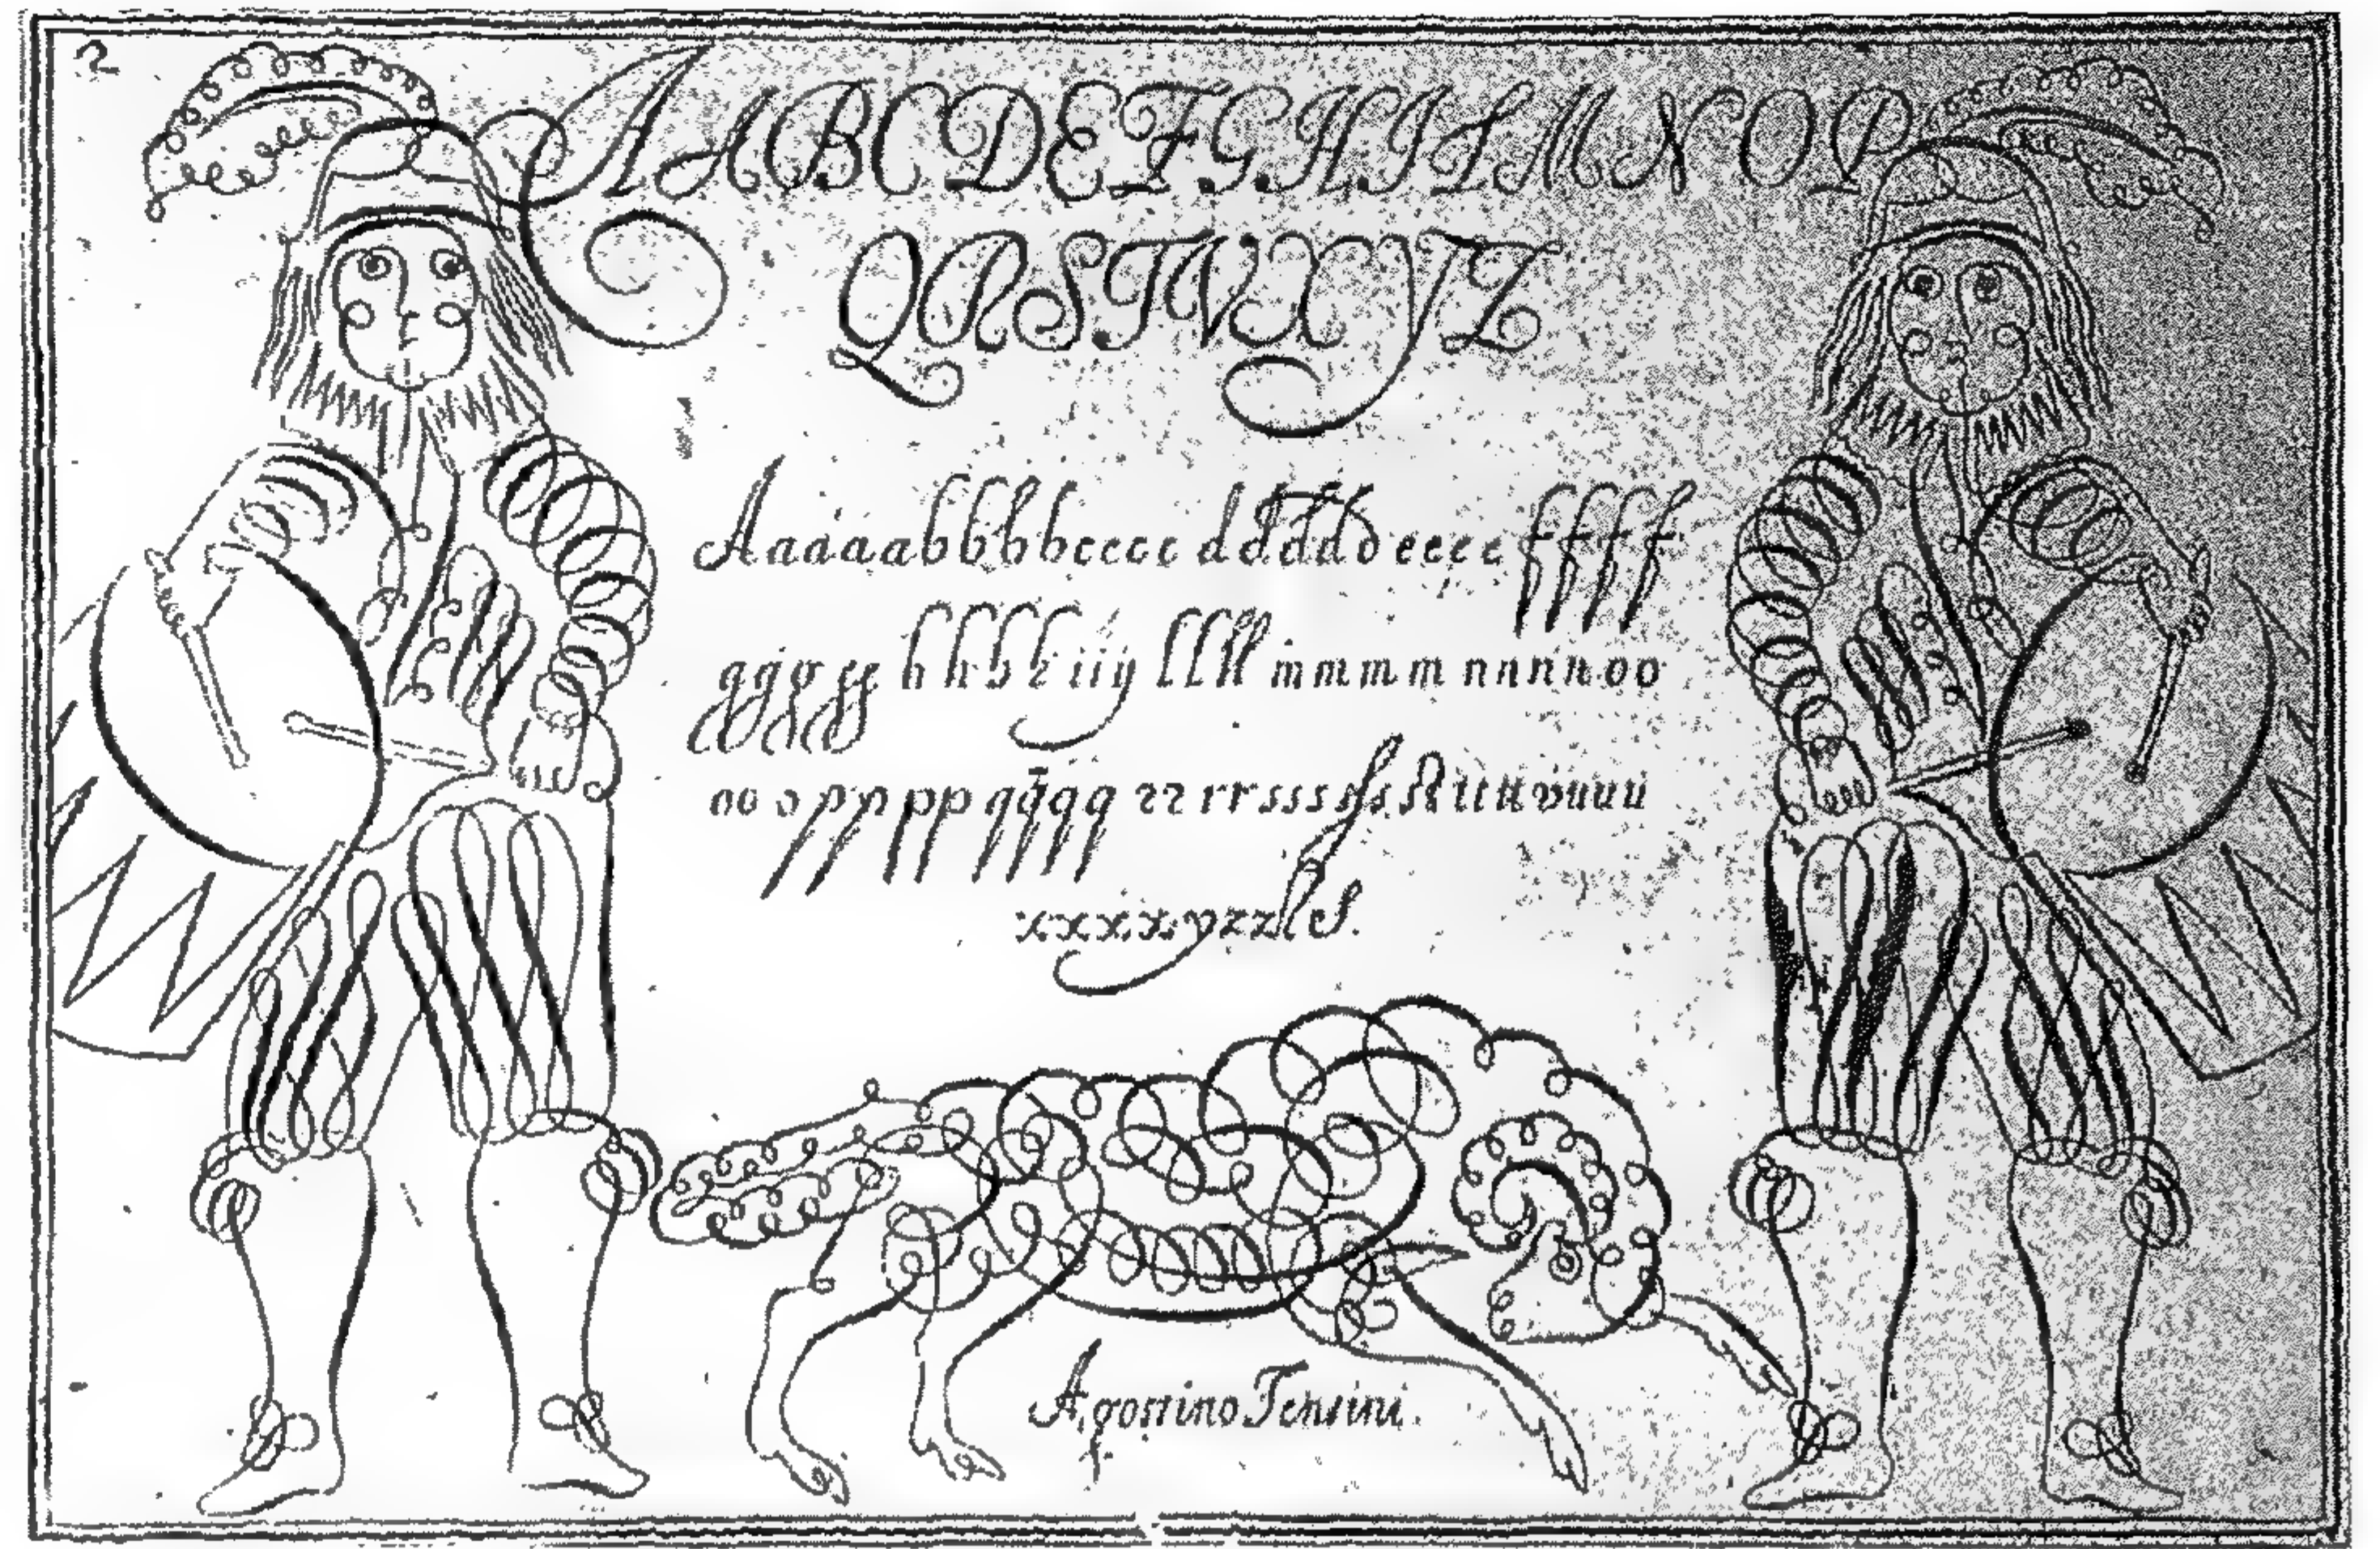 2
AABCDEFGHILMNOP
QRSTVXYZ
Aaaaabbbbcccc dddddeeeeffff
ggggg hhhh iiy llll mmmm nnnnoo
oo o ppppp qqqq rrrrsssssssttttvuuu
xxxxyzz&.
Agostino Tensini.